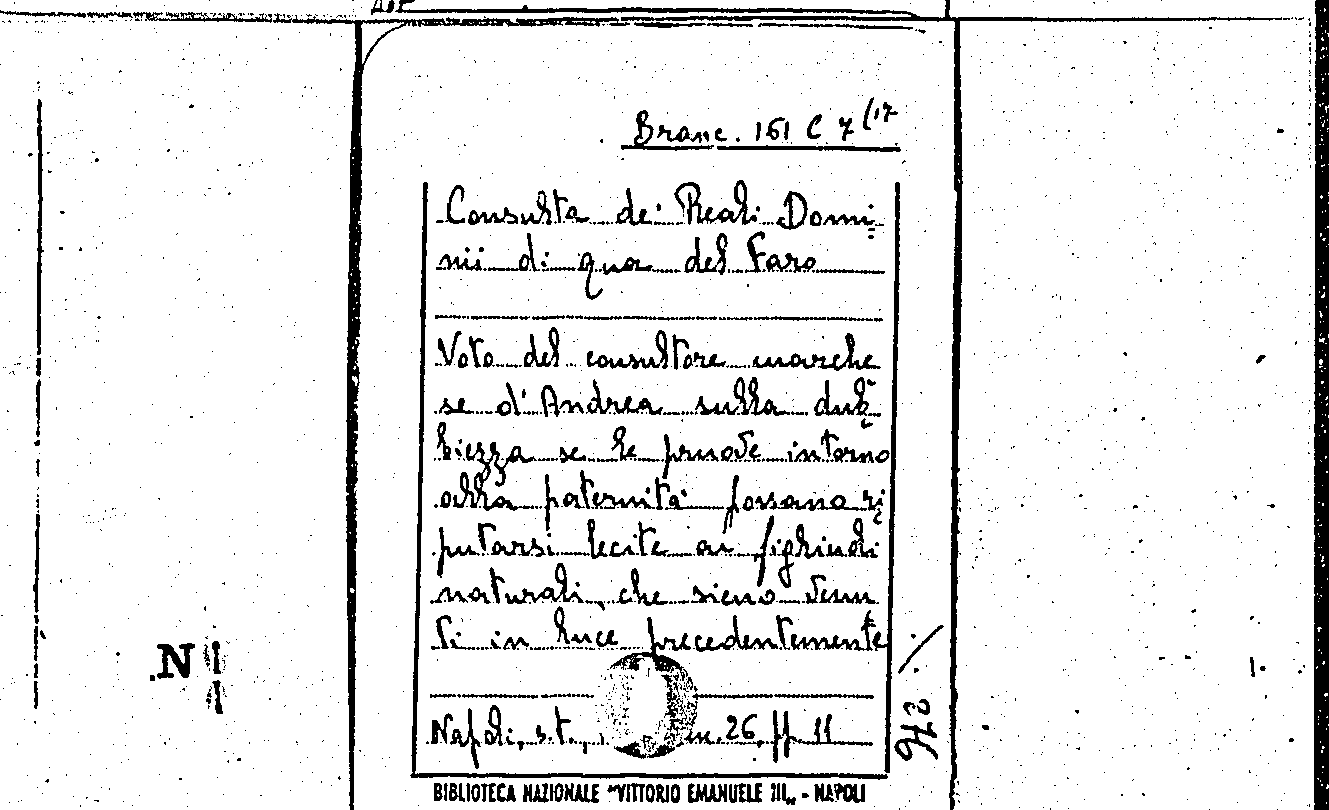 Branc. 161 C 7 (17
Consulta de' Reali Domi=
nii di qua del Faro
Voto del consultore marche
se d'Andrea sulla dub=
biezza se le pruove intorno
alla paternità possano ri=
putarsi lecite ai figliuoli
naturali, che sieno venu
ti in luce precedentemente
Napoli, s.t., 26, pp 11
276
N
BIBLIOTECA NAZIONALE "VITTORIO EMANUELE III„ - NAPOLI